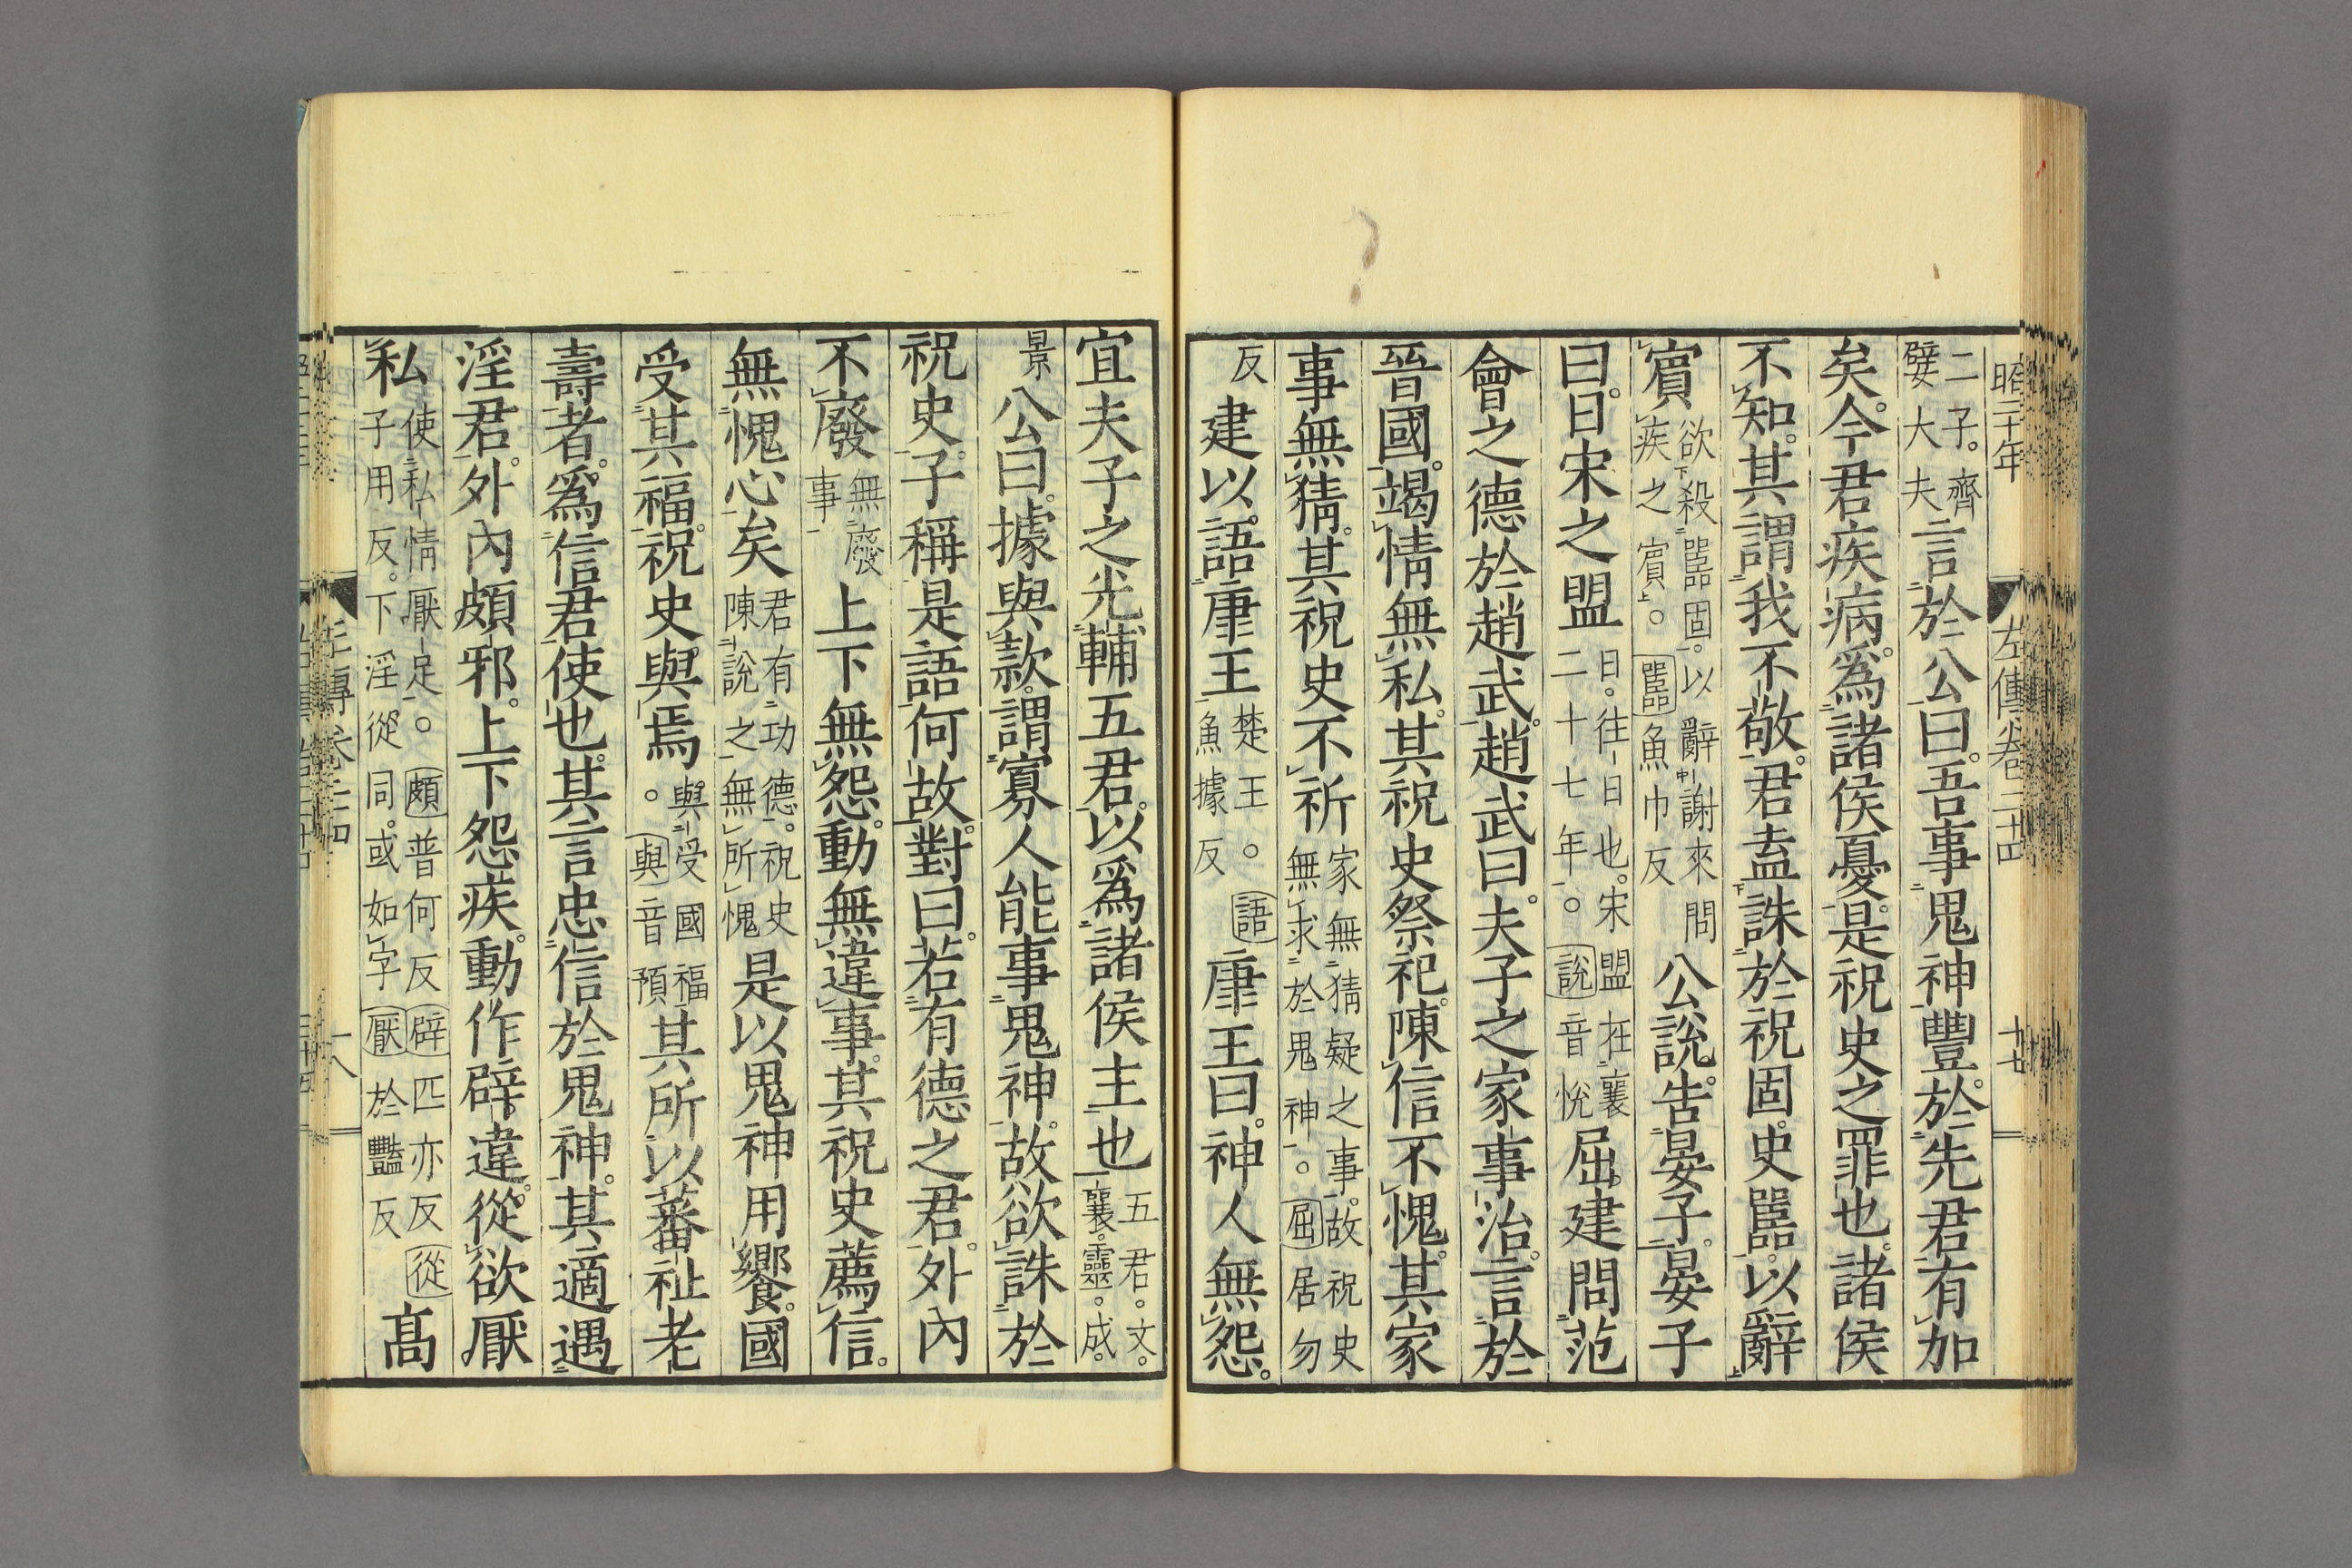 昭二十年 左傳卷二十四 十七
二子。齊嬖大夫言於公曰。吾事鬼神豐。於先君有加
矣。今君疾病。爲諸侯憂。是祝史之罪也。諸侯
不知。其謂我不敬。君盍誅於祝固史嚚。以辭
賓欲殺嚚固。以辭謝來問疾之賓。嚚魚巾反公說。告晏子。晏子
曰。日宋之盟日。往日也。宋盟在襄二十七年。說音悅屈建問范
會之德於趙武。趙武曰。夫子之家事治。言於
晉國。竭情無私。其祝史祭祀。陳信不愧。其家
事無猜。其祝史不祈家無猜疑之事。故祝史無求於鬼神。屈居勿
反建以語康王楚王。語魚據反康王曰。神人無怨。
宜夫子之光輔五君。以爲諸侯主也五君。文。襄。靈。成。
景公曰。據與款。謂寡人能事鬼神。故欲誅於
祝史。子稱是語何故。對曰。若有德之君。外內
不廢無廢事上下無怨。動無違事。其祝史薦信。
無愧心矣君有功德。祝史陳說之無所愧是以鬼神用饗。國
受其福。祝史與焉與受國福。與音預其所以蕃祉老
壽者。爲信君使也。其言忠信於鬼神。其適遇
淫君。外內頗邪。上下怨疾。動作辟違。從欲厭
私使私情厭足。頗普何反辟匹亦反從子用反。下淫從同。或如字厭於豔反高
左傳卷二十四 十八